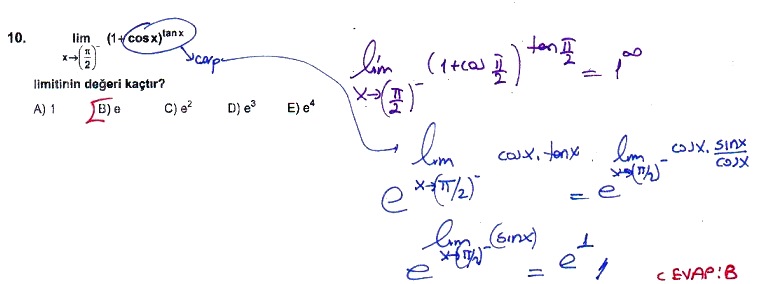 10. lim x→(π/2)⁻ (1+cosx)^tanx
→ çarp
limitinin değeri kaçtır?
A) 1 B) e C) e² D) e³ E) e⁴
lim x→(π/2)⁻ (1+cos π/2)^tan π/2 = 1^∞
e^lim x→(π/2)⁻ cosx.tanx = e^lim x→(π/2)⁻ cosx.sinx/cosx
e^lim x→(π/2)⁻ (sinx) = e¹,
CEVAP:B